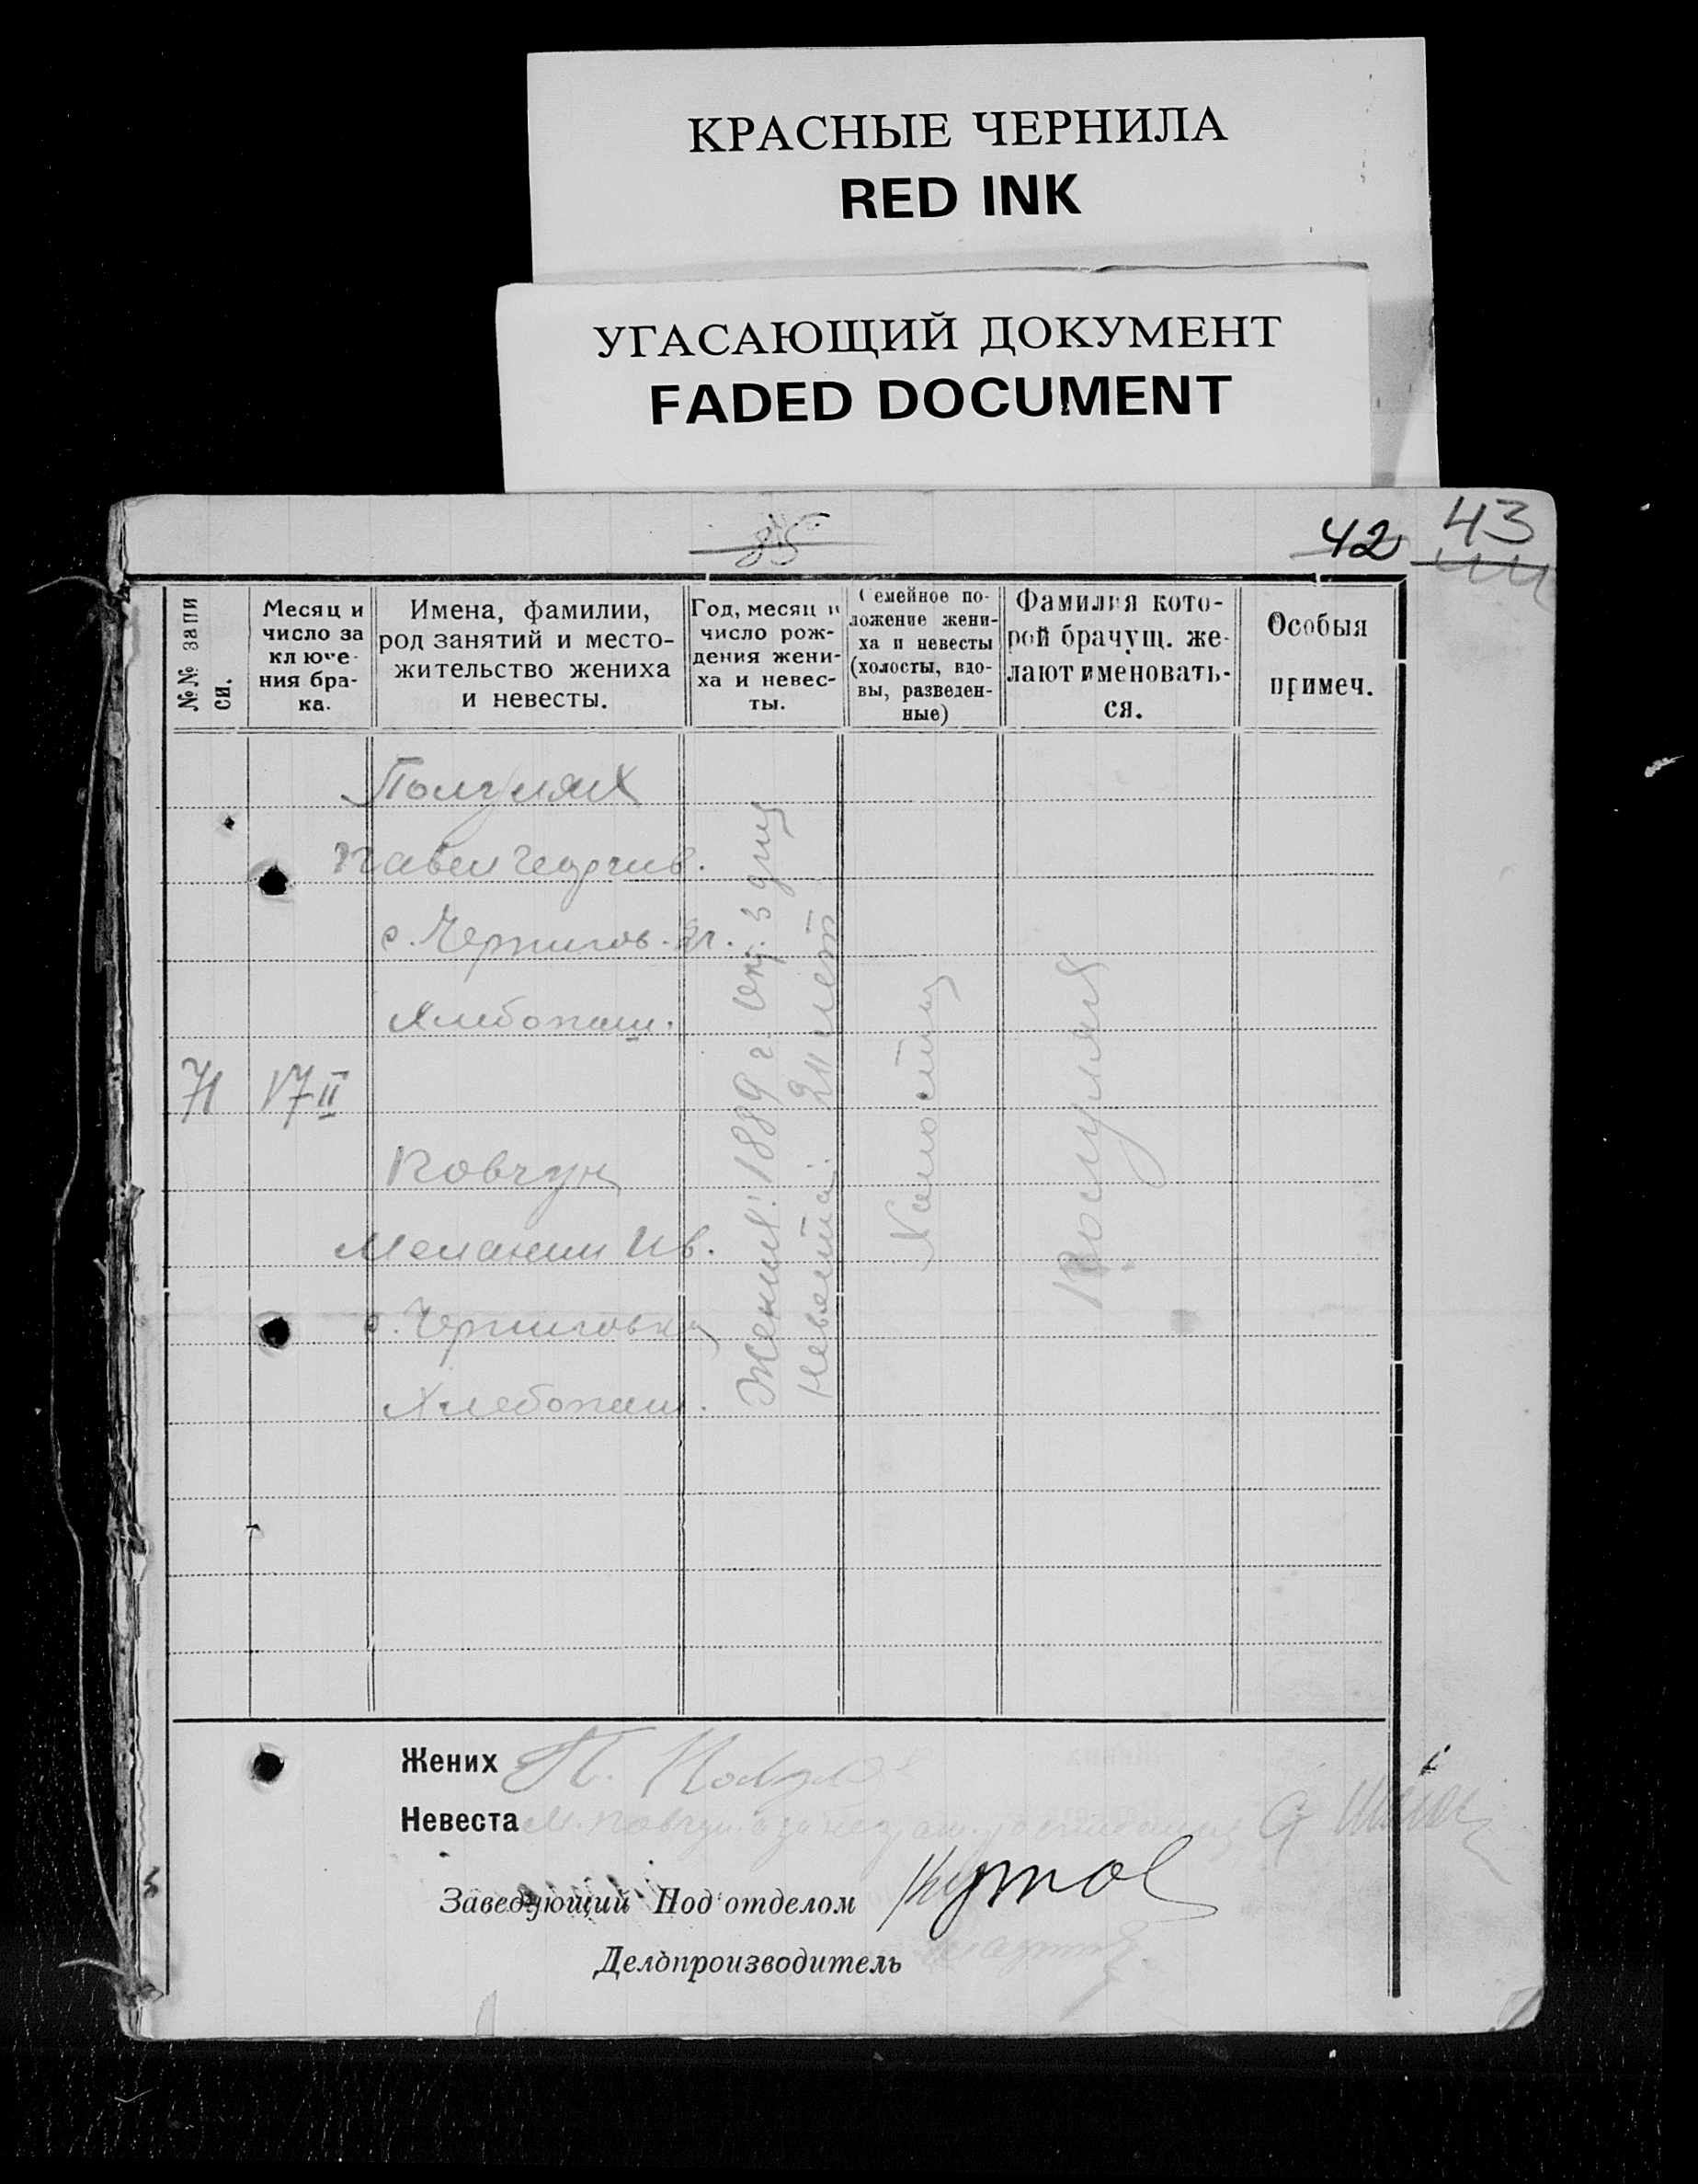 КРАСНЫЕ ЧЕРНИЛА
RED INK
УГАСАЮЩИЙ ДОКУМЕНТ
FADED DOCUMENT
85
42
43
№№ запи
си.
Месяц и
число за
ключе-
ния бра-
ка.
Имена, фамилии,
род занятий и место-
жительство жениха
и невесты.
Год, месяц и
число рож-
дения жени-
ха и невес-
ты.
Семейное по-
ложение жени-
ха и невесты
(холосты, вдо-
вы, разведен-
ные)
Фамилия кото-
рой брачущ. же-
лают именовать-
ся.
Особыя
примеч.
Павел Георгиев.
с. Чернигов.
Хлебопаш.
71
17-II
Ковчун
Мелания Ив.
с. Черниговка
Хлебопаш.
Жених: 1889 г. Окт. 3 дня
Невеста: 21 лет
Холосты
Жених П.
Невеста М. Ковчун
Заведующий Под'отделом
Делопроизводитель